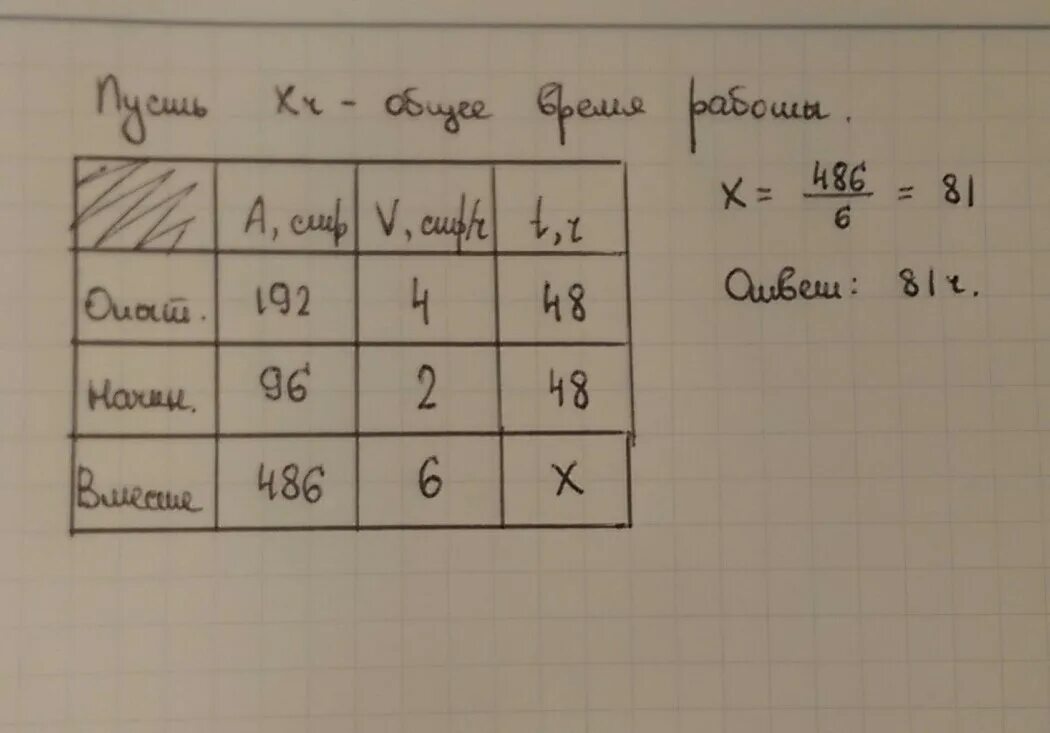 Пусть Xч - общее время работы.
А, стр V, стр/ч t, ч
Опыт. 192 4 48
Начин. 96 2 48
Вместе 486 6 X
X = 486/6 = 81
Ответ: 81 ч.